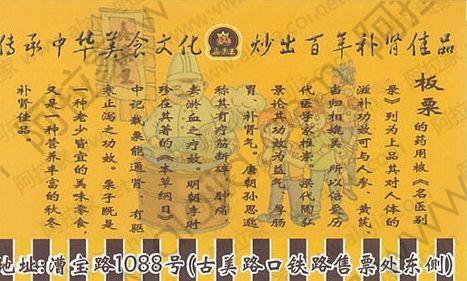 传承中华美食文化 炒出百年补肾佳品
板栗的药用被《名医别
录》列为上品其对人体的
滋补功效可与人参、黄芪、
当归相媲美，所以倍受历
代医学家推崇。梁代陶弘
景论其功效为益气，厚肠
胃，补肾气。唐朝孙思邈
称其有疗筋断碎，肿痛
去淤血之疗效。明朝李时
珍在其著的《本草纲目》
中记载栗能通肾、有驱
寒止泻之功效。栗子既是
一种老少皆宜的美味零食，
又是一种营养丰富的秋冬
补肾佳品。
地址:漕宝路1088号(古美路口铁路售票处东侧)